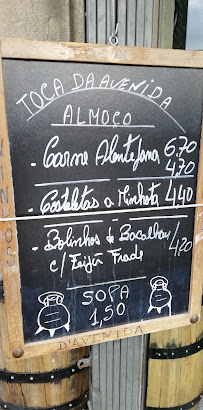 TOCA DA AVENIDA
ALMOÇO
- Carne Alentejana 6,70
4,70
- Costeletas a Minhota 4,40
- Bolinhos de Bacalhau 4,20
c/ Feijão Frade
SOPA
1,50
D'AVENIDA